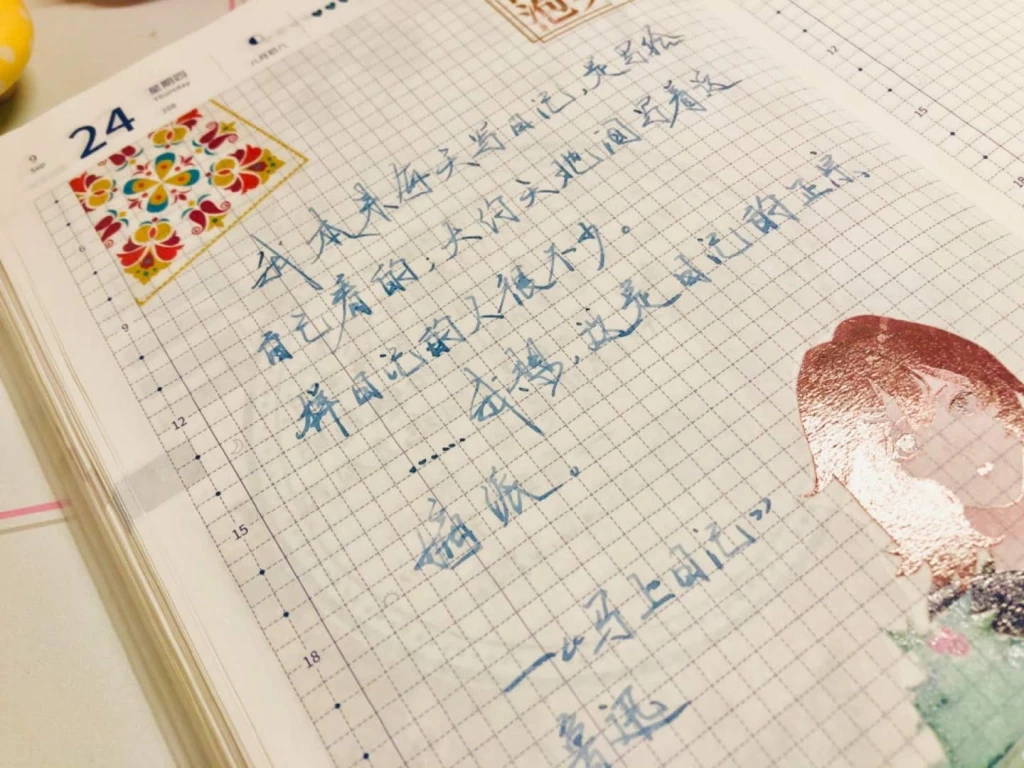 9
Sep
24
星期四
Thursday
八月初八
我本来每天写日记,是写给
自己看的;大约天地间写着这
样日记的人很不少。
……我想,这是日记的正宗、
嫡派。
—“马上日记”
鲁迅
6
9
12
15
18
12
15
18